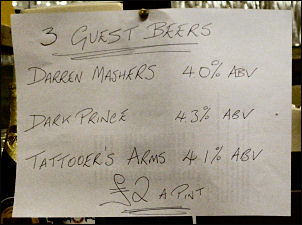 3 GUEST BEERS
DARREN MASHERS 4.0% ABV
DARK PRINCE 4.3% ABV
TATTOOER'S ARMS 4.1% ABV
£2 A PINT